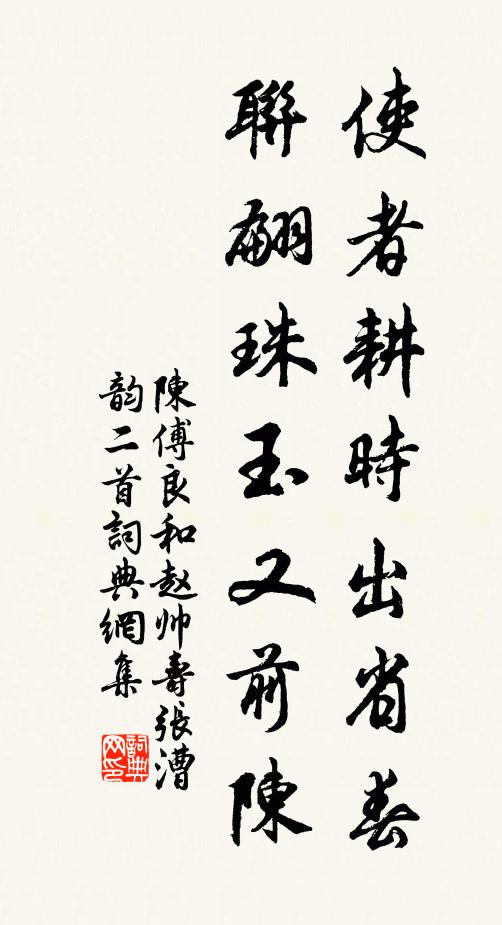 使者耕時出省春
聯翩珠玉又前陳
陳傅良和赵帅壽張漕
韵二首詞典網集
詞典
网印